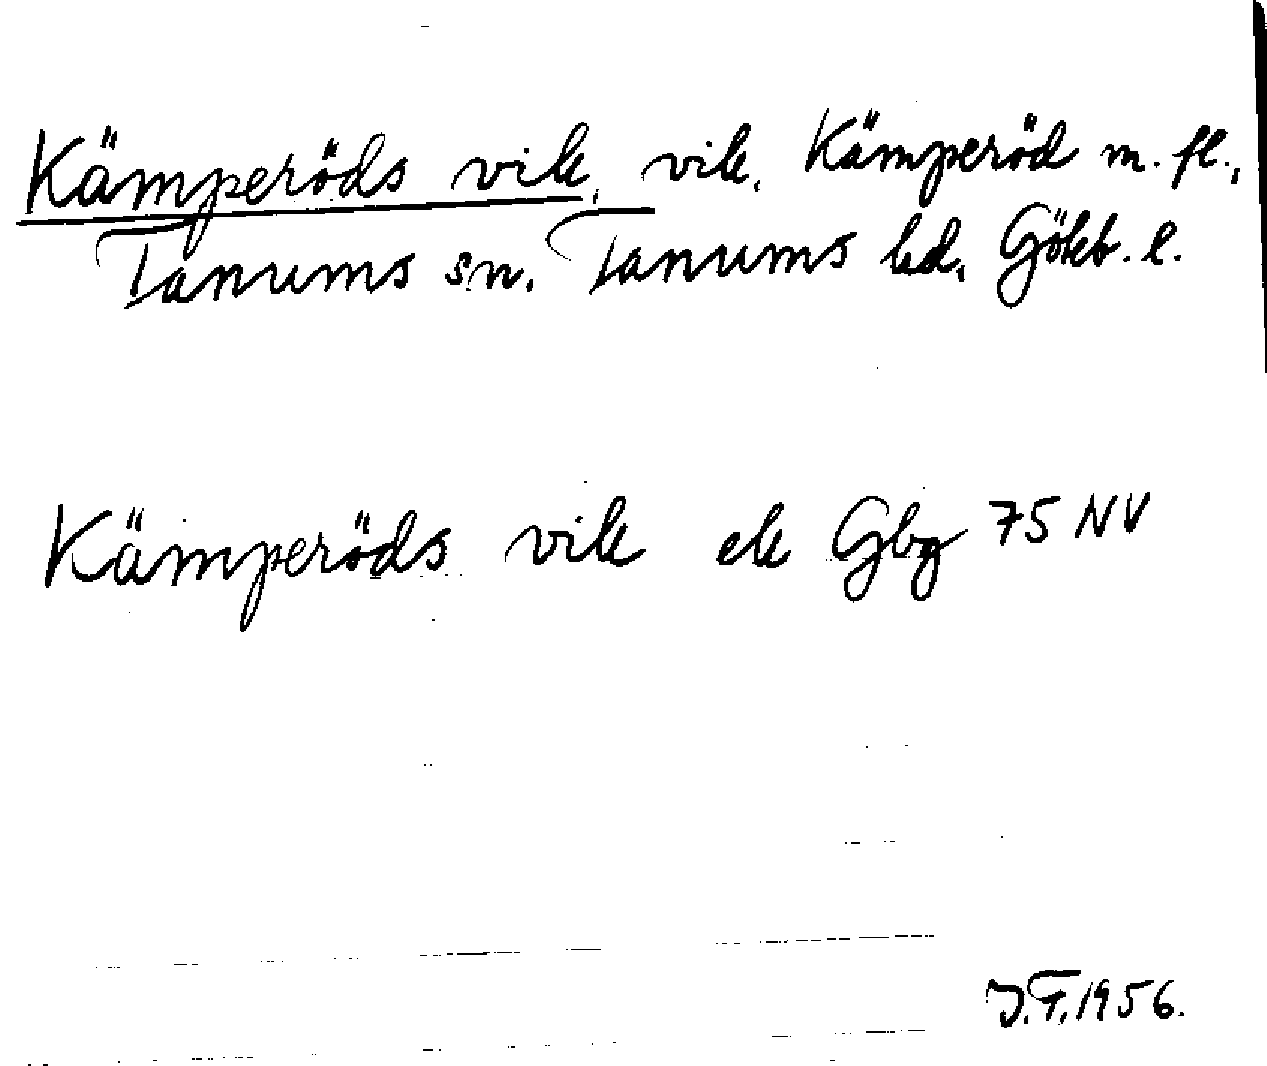 Kämperöds vik, vik, Kämperöd m. fl.,
Tanums sn. Tanums hd, Göteb. l.
Kämperöds vik ek Gbg 75 NV
J.T. 1956.